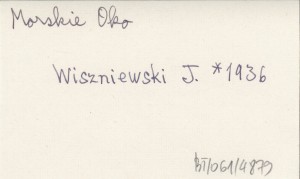 Morskie Oko
Wiszniewski J. *1936
BT/061/4879